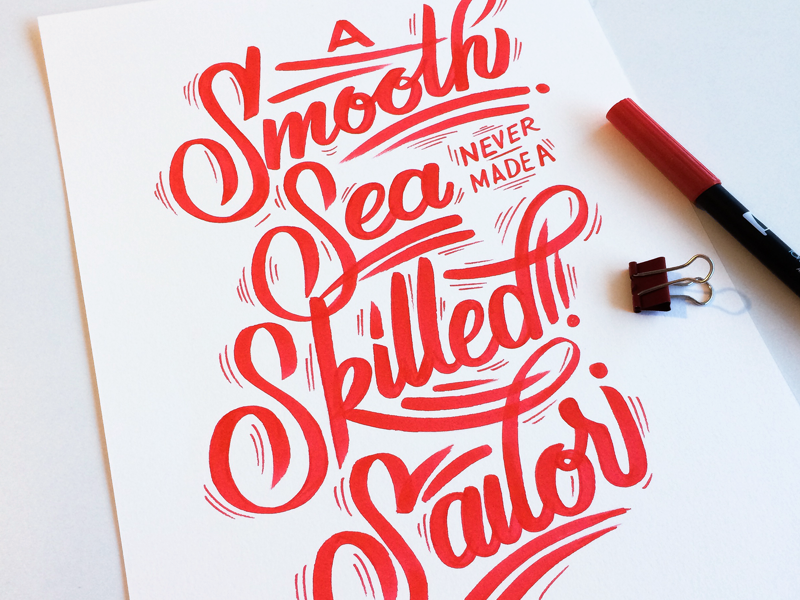 A
Smooth
Sea
NEVER
MADE A
Skilled
Sailor